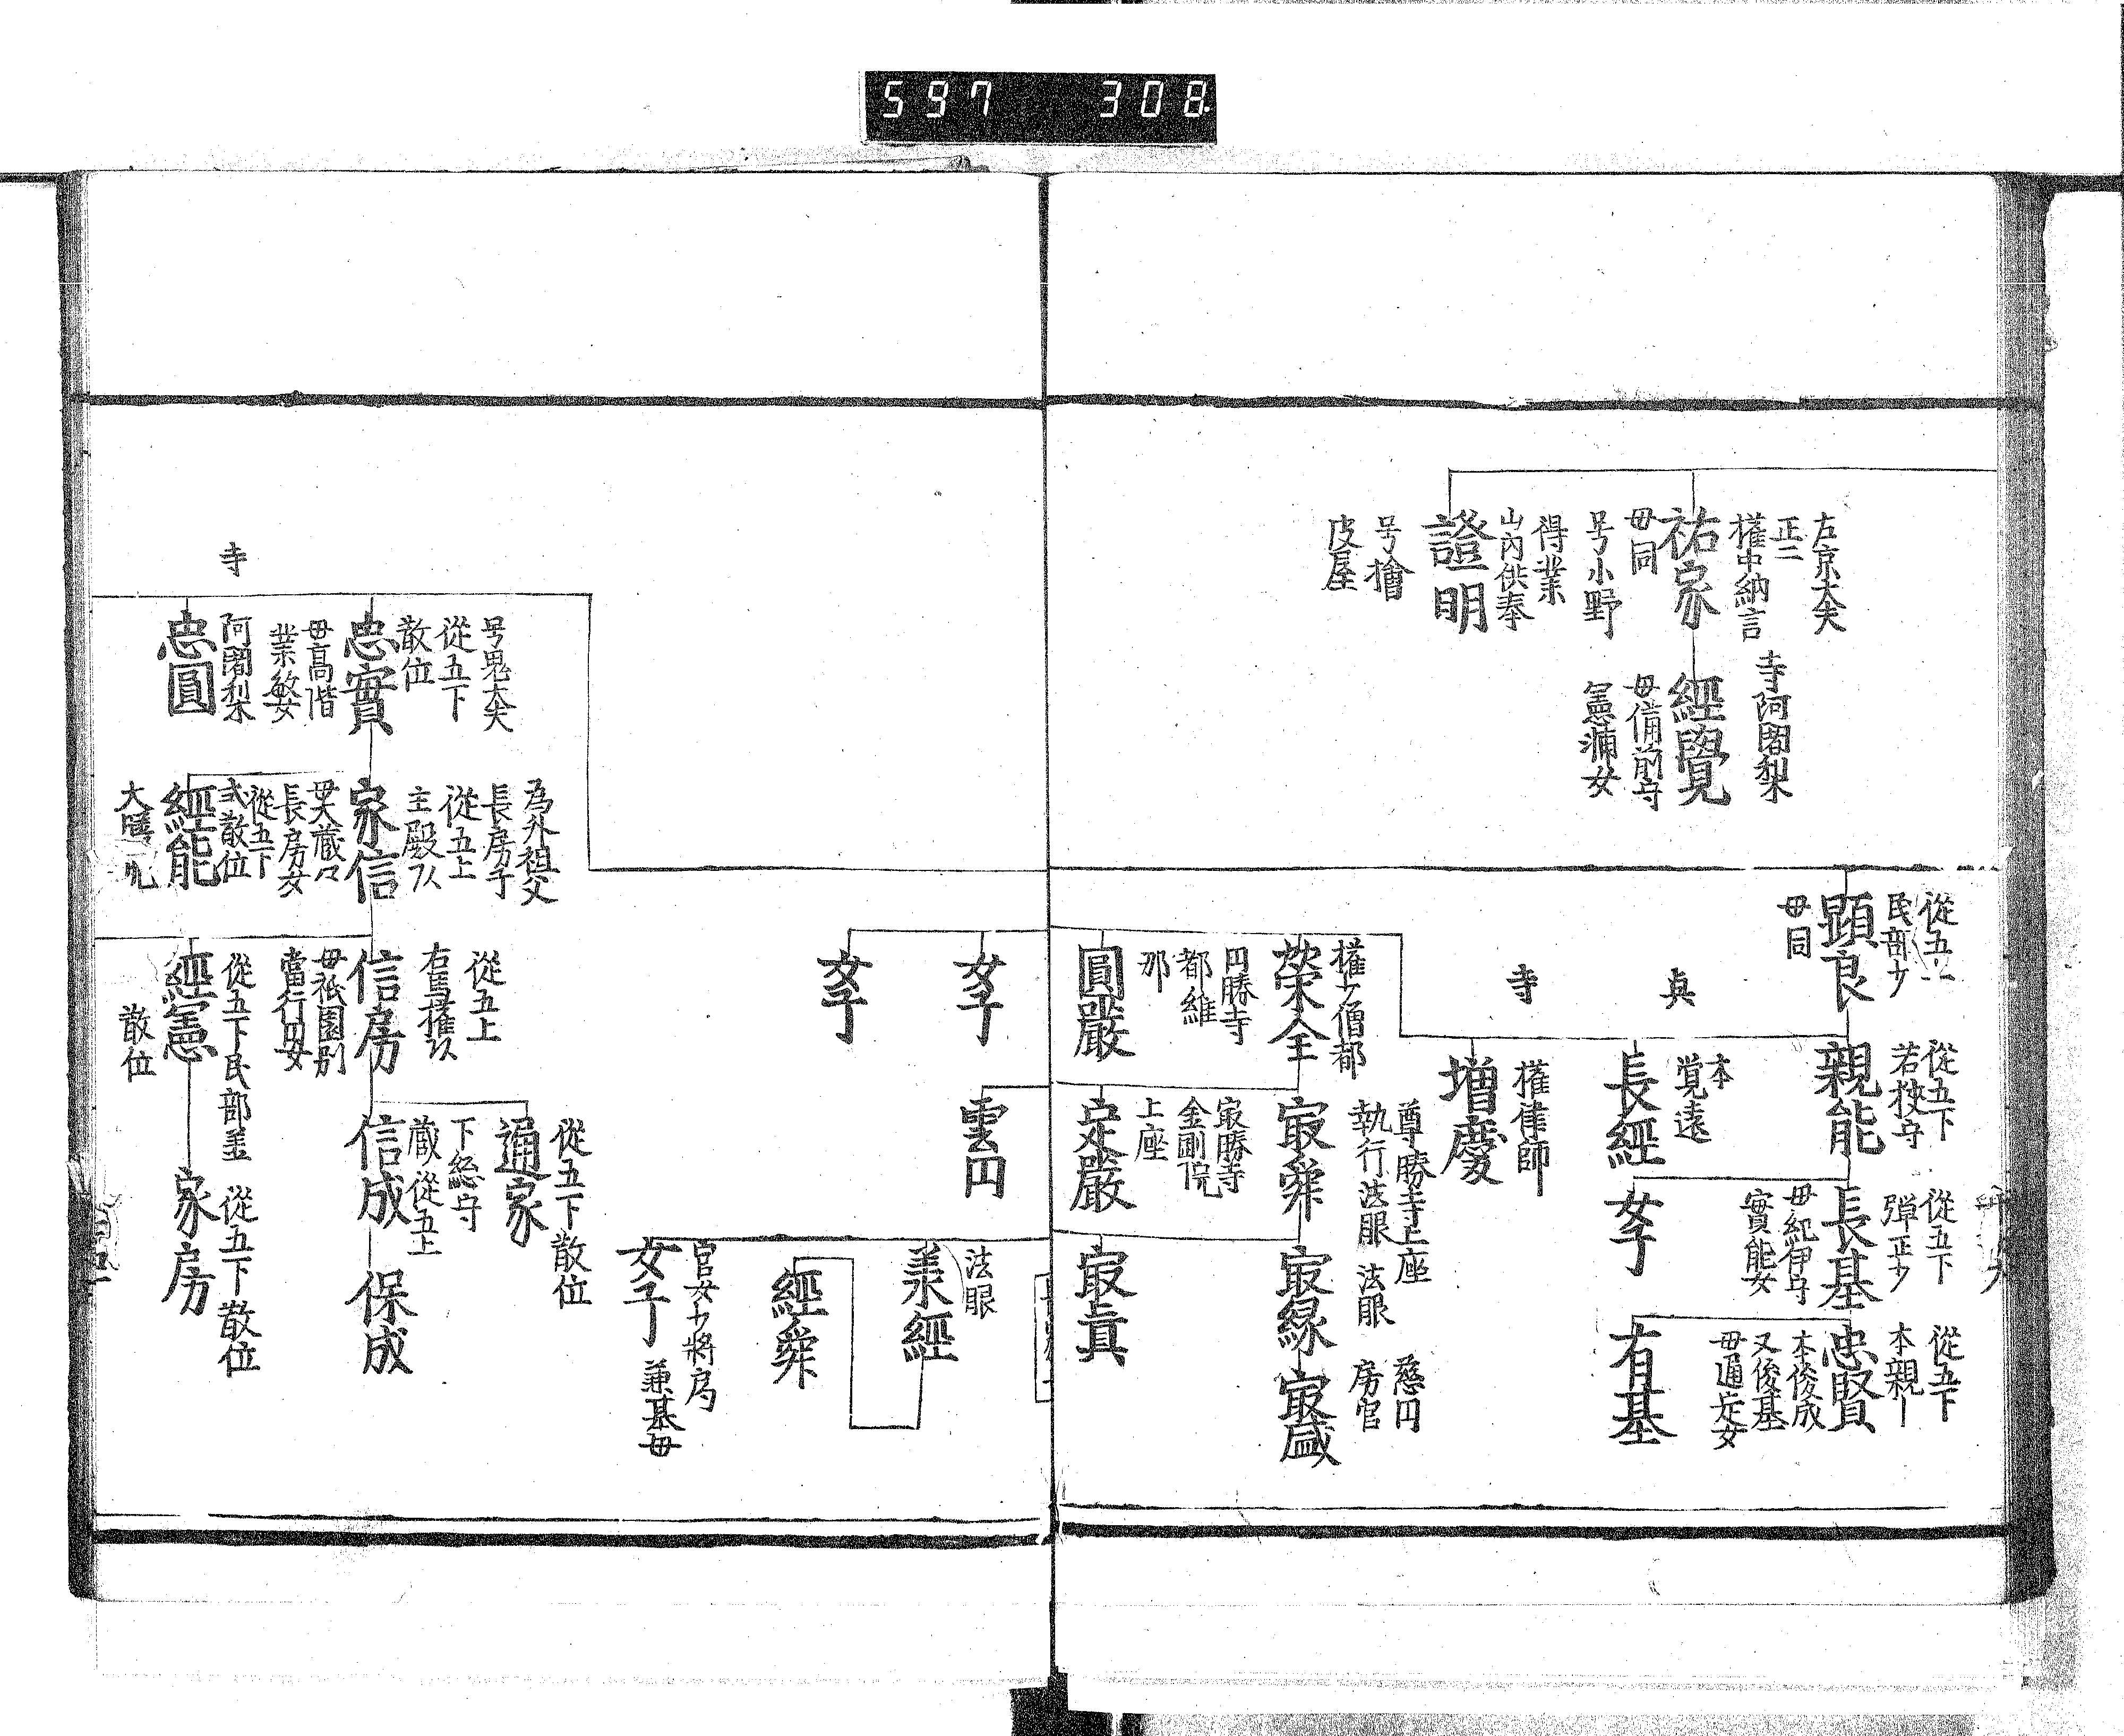 597 308
左京大夫
正二
權中納言
祐家
母同
号小野
寺阿闍梨
經覺
母備前守
得業
山内供奉
證明
号檜
皮屋
民部少
顕良
母同
從五下
若狭守
親能
真
本
覚遠
長經
寺
權律師
増慶
從五下
弾正少
長基
母紀伊守
實能女
女子
從五下
本親
忠賢
本俊成
又俊基
母通定女
有基
權少僧都
榮全
円勝寺
都維
那
圓嚴
女子
女子
尊勝寺上座
執行法眼
㝡舜
㝡勝寺
金剛院
上座
定嚴
雲円
法眼
㝡縁
㝡眞
慈円
房官
㝡盛
法眼
兼經
經舜
官女少將局
女子
兼基母
号鬼大夫
從五下
散位
忠實
母高階
業敏女
寺
阿闍梨
忠圓
為外祖父
長房子
從五上
主殿
家信
母大蔵
長房女
從五下
散位
經能
大膳
從五上
右馬權
信房
母祇園別
當行円女
從五下民部
經憲
散位
從五下散位
通家
下総守
藏從五上
信成
保成
從五下散位
家房